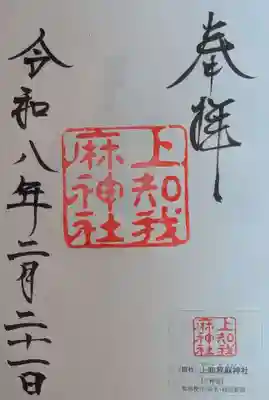 奉拝
上知我
麻神社
令和八年二月二十一日
上知我
麻神社
上知我麻神社